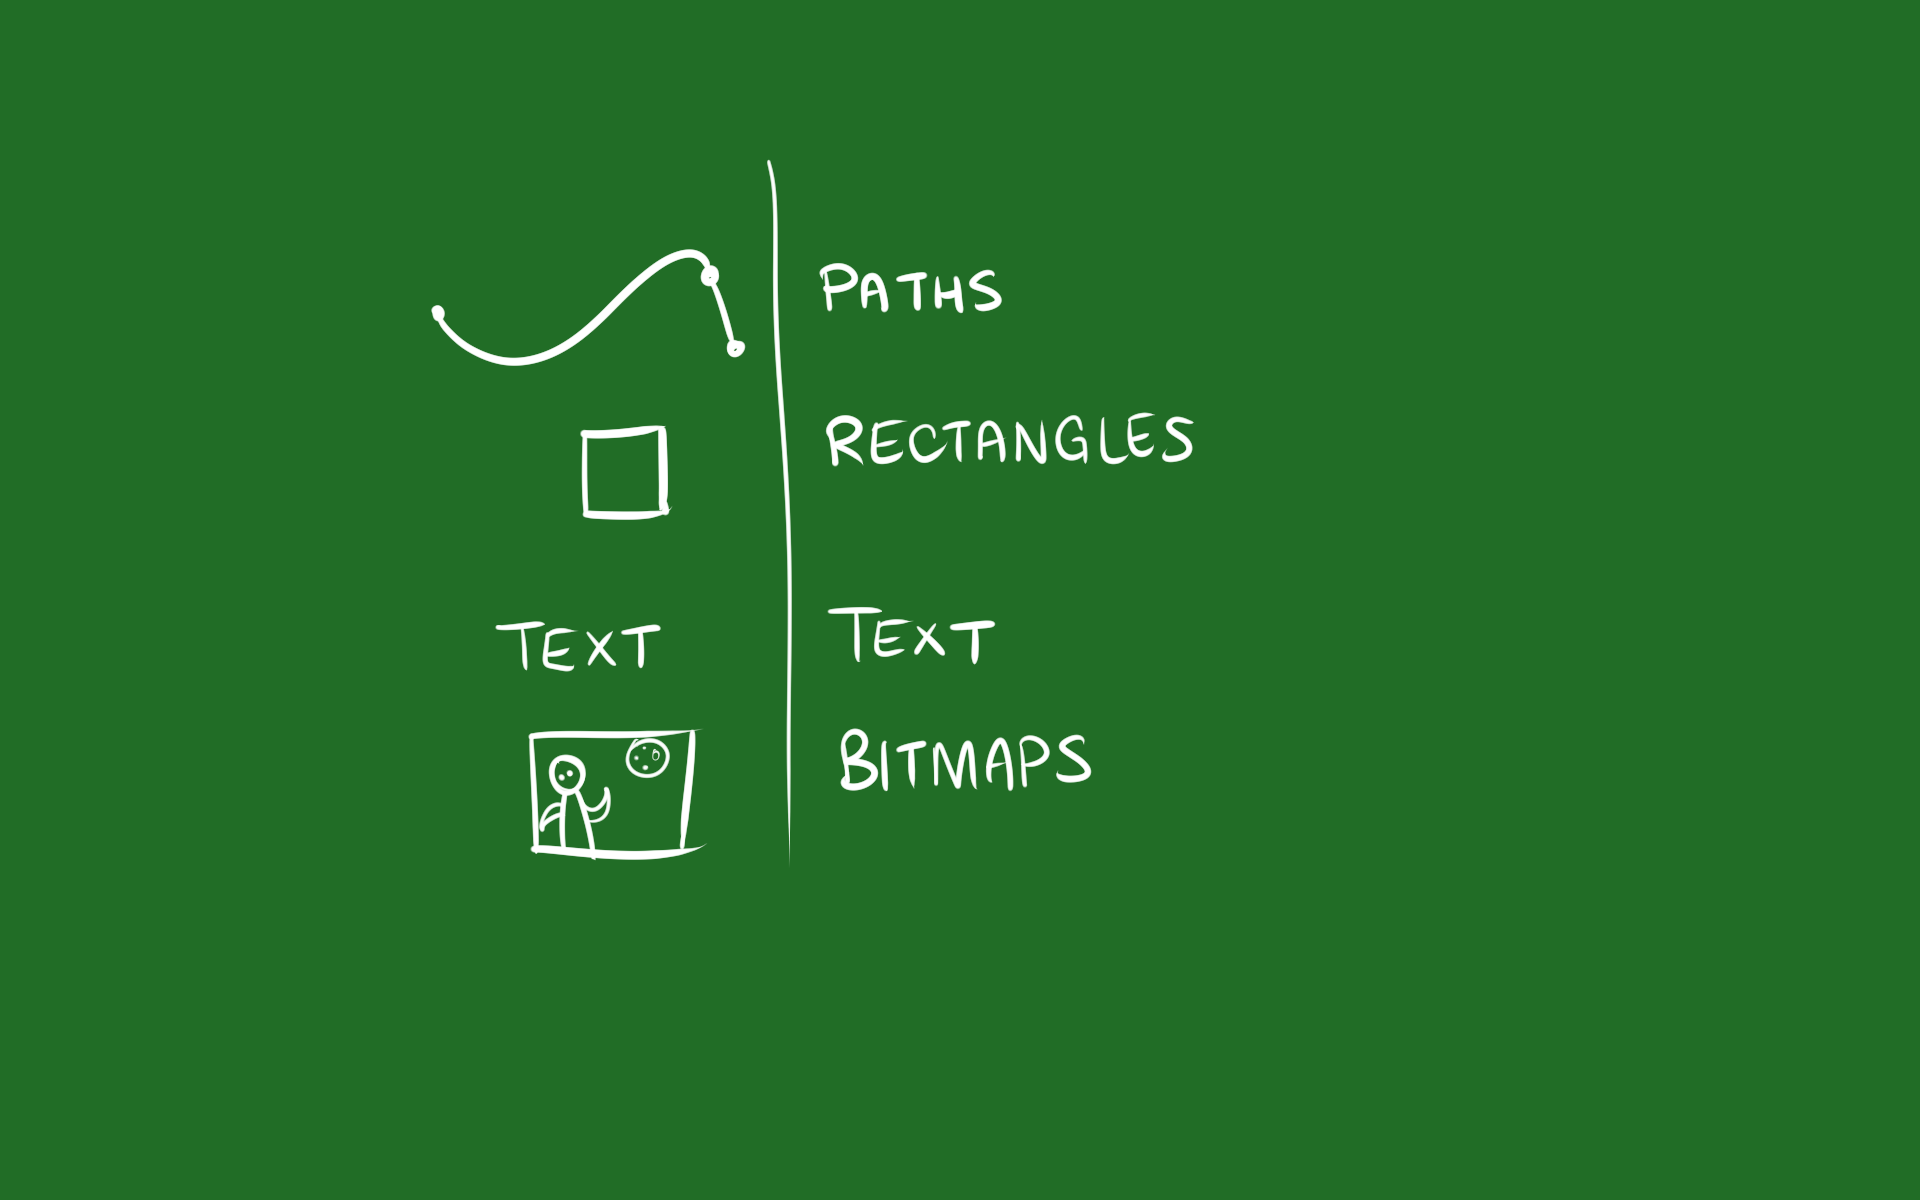 PATHS
RECTANGLES
TEXT TEXT
BITMAPS